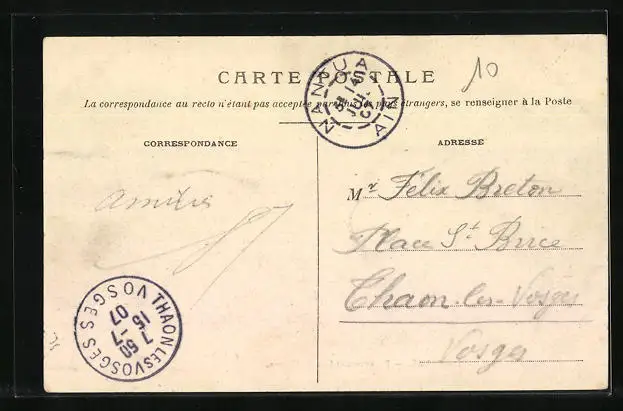 10
CARTE POSTALE
La correspondance au recto n'étant pas acceptée par tous les pays étrangers, se renseigner à la Poste
NANTUA
AIN
CORRESPONDANCE
ADRESSE
Mr Félix Breton
Place St Brice
Thaon-les-Vosges
Vosges
THAON LES VOSGES
VOSGES
15 -7
07